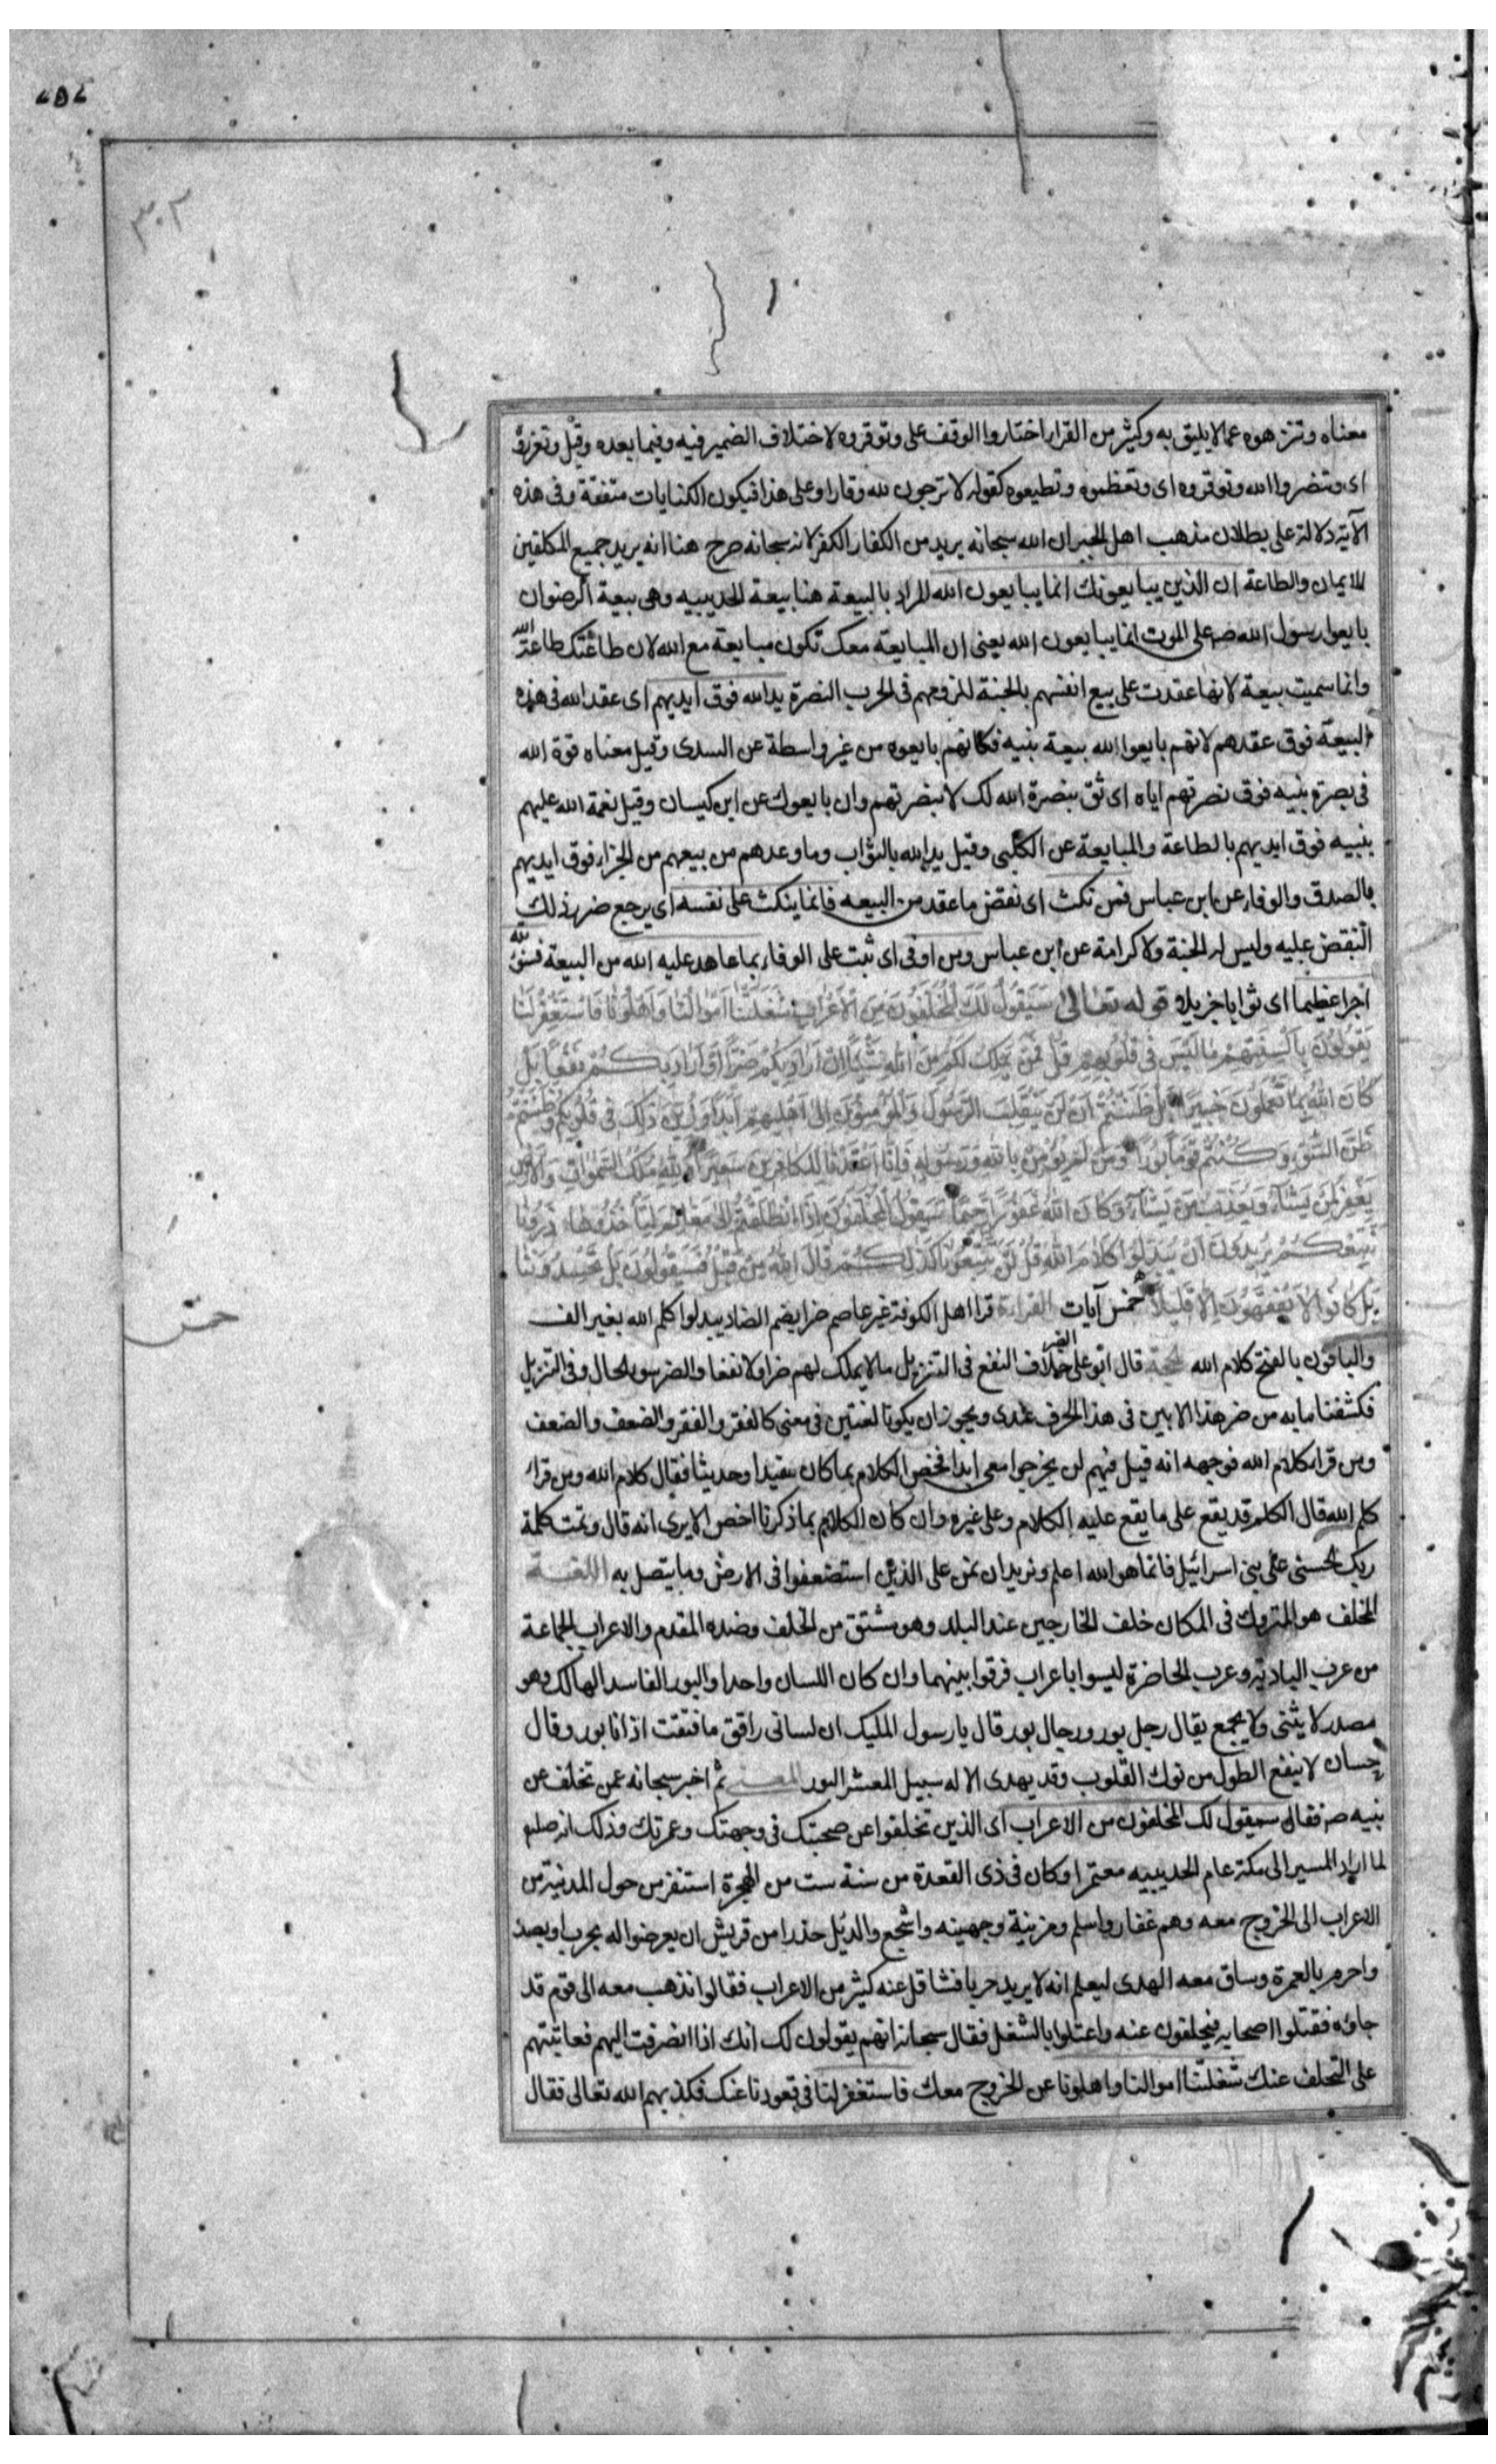 ٣٠٢
معناه وتنزهوه عما لا يليق به وكثير من القراء اختاروا الوقف على وتوقروه لاختلاف الضمير فيه وفيما بعده وقيل وتعزروه
اى وتنصروا الله وتوقروه اى وتعظموه وتطيعوه كقوله لا ترجون لله وقارا وعلى هذا فيكون الكنايات متفقة وفى هذه
الآية دلالة على بطلان مذهب اهل الجبر ان الله سبحانه يريد من الكفار الكفر لانه سبحانه صرح هنا انه يريد جميع المكلفين
للايمان والطاعة ان الذين يبايعونك انما يبايعون الله المراد بالبيعة هنا بيعة الحديبيه وهى بيعة الرضوان
بايعوا رسول الله صه على الموت انما يبايعون الله يعنى ان المبايعة معك تكون مبايعة مع الله لان طاعتك طاعة الله
وانما سميت بيعة لانها عقدت على بيع انفسهم بالجنة للزومهم فى الحرب النصرة يد الله فوق ايديهم اى عقد الله فى هذه
البيعة فوق عقدهم لانهم بايعوا الله بيعة بنبيه فكانهم بايعوه من غير واسطة عن السدى وقيل معناه قوة الله
فى نصرة نبيه فوق نصرتهم اياه اى ثق بنصرة الله لك لا بنصرتهم وان بايعوك عن ابن كيسان وقيل نعمة الله عليهم
بنبيه فوق ايديهم بالطاعة والمبايعة عن الكلبى وقيل يد الله بالثواب وما وعدهم من بيعهم من الجزاء فوق ايديهم
بالصدق والوفاء عن ابن عباس فمن نكث اى نقض ما عقد من البيعه فانما ينكث على نفسه اى يرجع ضرر ذلك
النقض عليه وليس له الجنة ولا كرامة عن ابن عباس ومن اوفى اى ثبت على الوفاء بما عاهد عليه الله من البيعة فسنؤتيه
اجرا عظيما اى ثوابا جزيلا قوله تعالى سَيَقُولُ لَكَ الْمُخَلَّفُونَ مِنَ الْأَعْرَابِ شَغَلَتْنَا أَمْوَالُنَا وَأَهْلُونَا فَاسْتَغْفِرْ لَنَا
يَقُولُونَ بِأَلْسِنَتِهِمْ مَا لَيْسَ فِى قُلُوبِهِمْ قُلْ فَمَنْ يَمْلِكُ لَكُمْ مِنَ اللهِ شَيْئًا اِنْ اَرَادَ بِكُمْ ضَرًّا اَوْ اَرَادَ بِكُمْ نَفْعًا بَلْ
كَانَ اللهُ بِمَا تَعْمَلُونَ خَبِيرًا بَلْ ظَنَنْتُمْ اَنْ لَنْ يَنْقَلِبَ الرَّسُولُ وَالْمُؤْمِنُونَ اِلَى اَهْلِيهِمْ اَبَدًا وَزُيِّنَ ذٰلِكَ فِى قُلُوبِكُمْ وَظَنَنْتُمْ
ظَنَّ السَّوْءِ وَكُنْتُمْ قَوْمًا بُورًا وَمَنْ لَمْ يُؤْمِنْ بِاللهِ وَرَسُولِهِ فَاِنَّا اَعْتَدْنَا لِلْكَافِرِينَ سَعِيرًا وَلِلّٰهِ مُلْكُ السَّمٰوَاتِ وَالْاَرْضِ
يَغْفِرُ لِمَنْ يَشَاءُ وَيُعَذِّبُ مَنْ يَشَاءُ وَكَانَ اللهُ غَفُورًا رَحِيمًا سَيَقُولُ الْمُخَلَّفُونَ اِذَا انْطَلَقْتُمْ اِلَى مَغَانِمَ لِتَأْخُذُوهَا ذَرُونَا
نَتَّبِعْكُمْ يُرِيدُونَ اَنْ يُبَدِّلُوا كَلَامَ اللهِ قُلْ لَنْ تَتَّبِعُونَا كَذٰلِكُمْ قَالَ اللهُ مِنْ قَبْلُ فَسَيَقُولُونَ بَلْ تَحْسُدُونَنَا
بَلْ كَانُوا لَا يَفْقَهُونَ اِلَّا قَلِيلًا خمس آيات القراءة قرا اهل الكوفة غير عاصم ضرا بضم الضاد يبدلوا كلم الله بغير الف
والباقون بالفتح كلام الله الحجة قال ابو على الضر خلاف النفع فى التنزيل ما لا يملك لهم ضرا ولا نفعا والضر سوء الحال وفى التنزيل
فكشفنا ما به من ضر هذا الابين فى هذا الحرف عندى ويجوز ان يكونا لغتين فى معنى كالفقر والفقر والضعف والضعف
ومن قرا كلام الله فوجهه انه قيل فيهم لن يخرجوا معى ابدا فخص الكلام بما كان مفيدا وحديثا فقال كلام الله ومن قرا
كلم الله قال الكلم قد يقع على ما يقع عليه الكلام وعلى غيره وان كان الكلام بما ذكرنا اخص الا يرى انه قال وتمت كلمة
ربك الحسنى على بنى اسرائيل فانما هو الله اعلم ونريد ان نمن على الذين استضعفوا فى الارض وما يتصل به اللغة
المخلف هو المتروك فى المكان خلف الخارجين عند البلد وهو مشتق من الخلف وضده المقدم والاعراب الجماعة
من عرب البادية وعرب الحاضرة ليسوا باعراب فرقوا بينهما وان كان اللسان واحدا والبور الفاسد الهالك وهو
مصدر لا يثنى ولا يجمع يقال رجل بور ورجال بور قال يا رسول المليك ان لسانى راقق ما فتقت اذ انا بور وقال
حسان لا ينفع الطول من نوك القلوب وقد يهدى الاله سبيل المعشر البور المعنى ثم اخبر سبحانه عمن تخلف عن
نبيه صه فقال سيقول لك المخلفون من الاعراب اى الذين تخلفوا عن صحبتك فى وجهتك وعمرتك وذلك انه صلعم
لما اراد المسير الى مكة عام الحديبيه معتمرا وكان فى ذى القعدة من سنة ست من الهجرة استنفر من حول المدينة من
الاعراب الى الخروج معه وهم غفار واسلم ومزينة وجهينه واشجع والدئل حذرا من قريش ان يعرضوا له بحرب او بصد
واحرم بالعمرة وساق معه الهدى ليعلم انه لا يريد حربا فتثاقل عنه كثير من الاعراب فقالوا نذهب معه الى قوم قد
جاؤه فقتلوا اصحابه فيخلفون عنه واعتلوا بالشغل فقال سبحانه انهم يقولون لك انك اذا انصرفت اليهم فعاتبتهم
على التخلف عنك شغلتنا اموالنا واهلونا عن الخروج معك فاستغفر لنا فى قعودنا عنك فكذبهم الله تعالى فقال